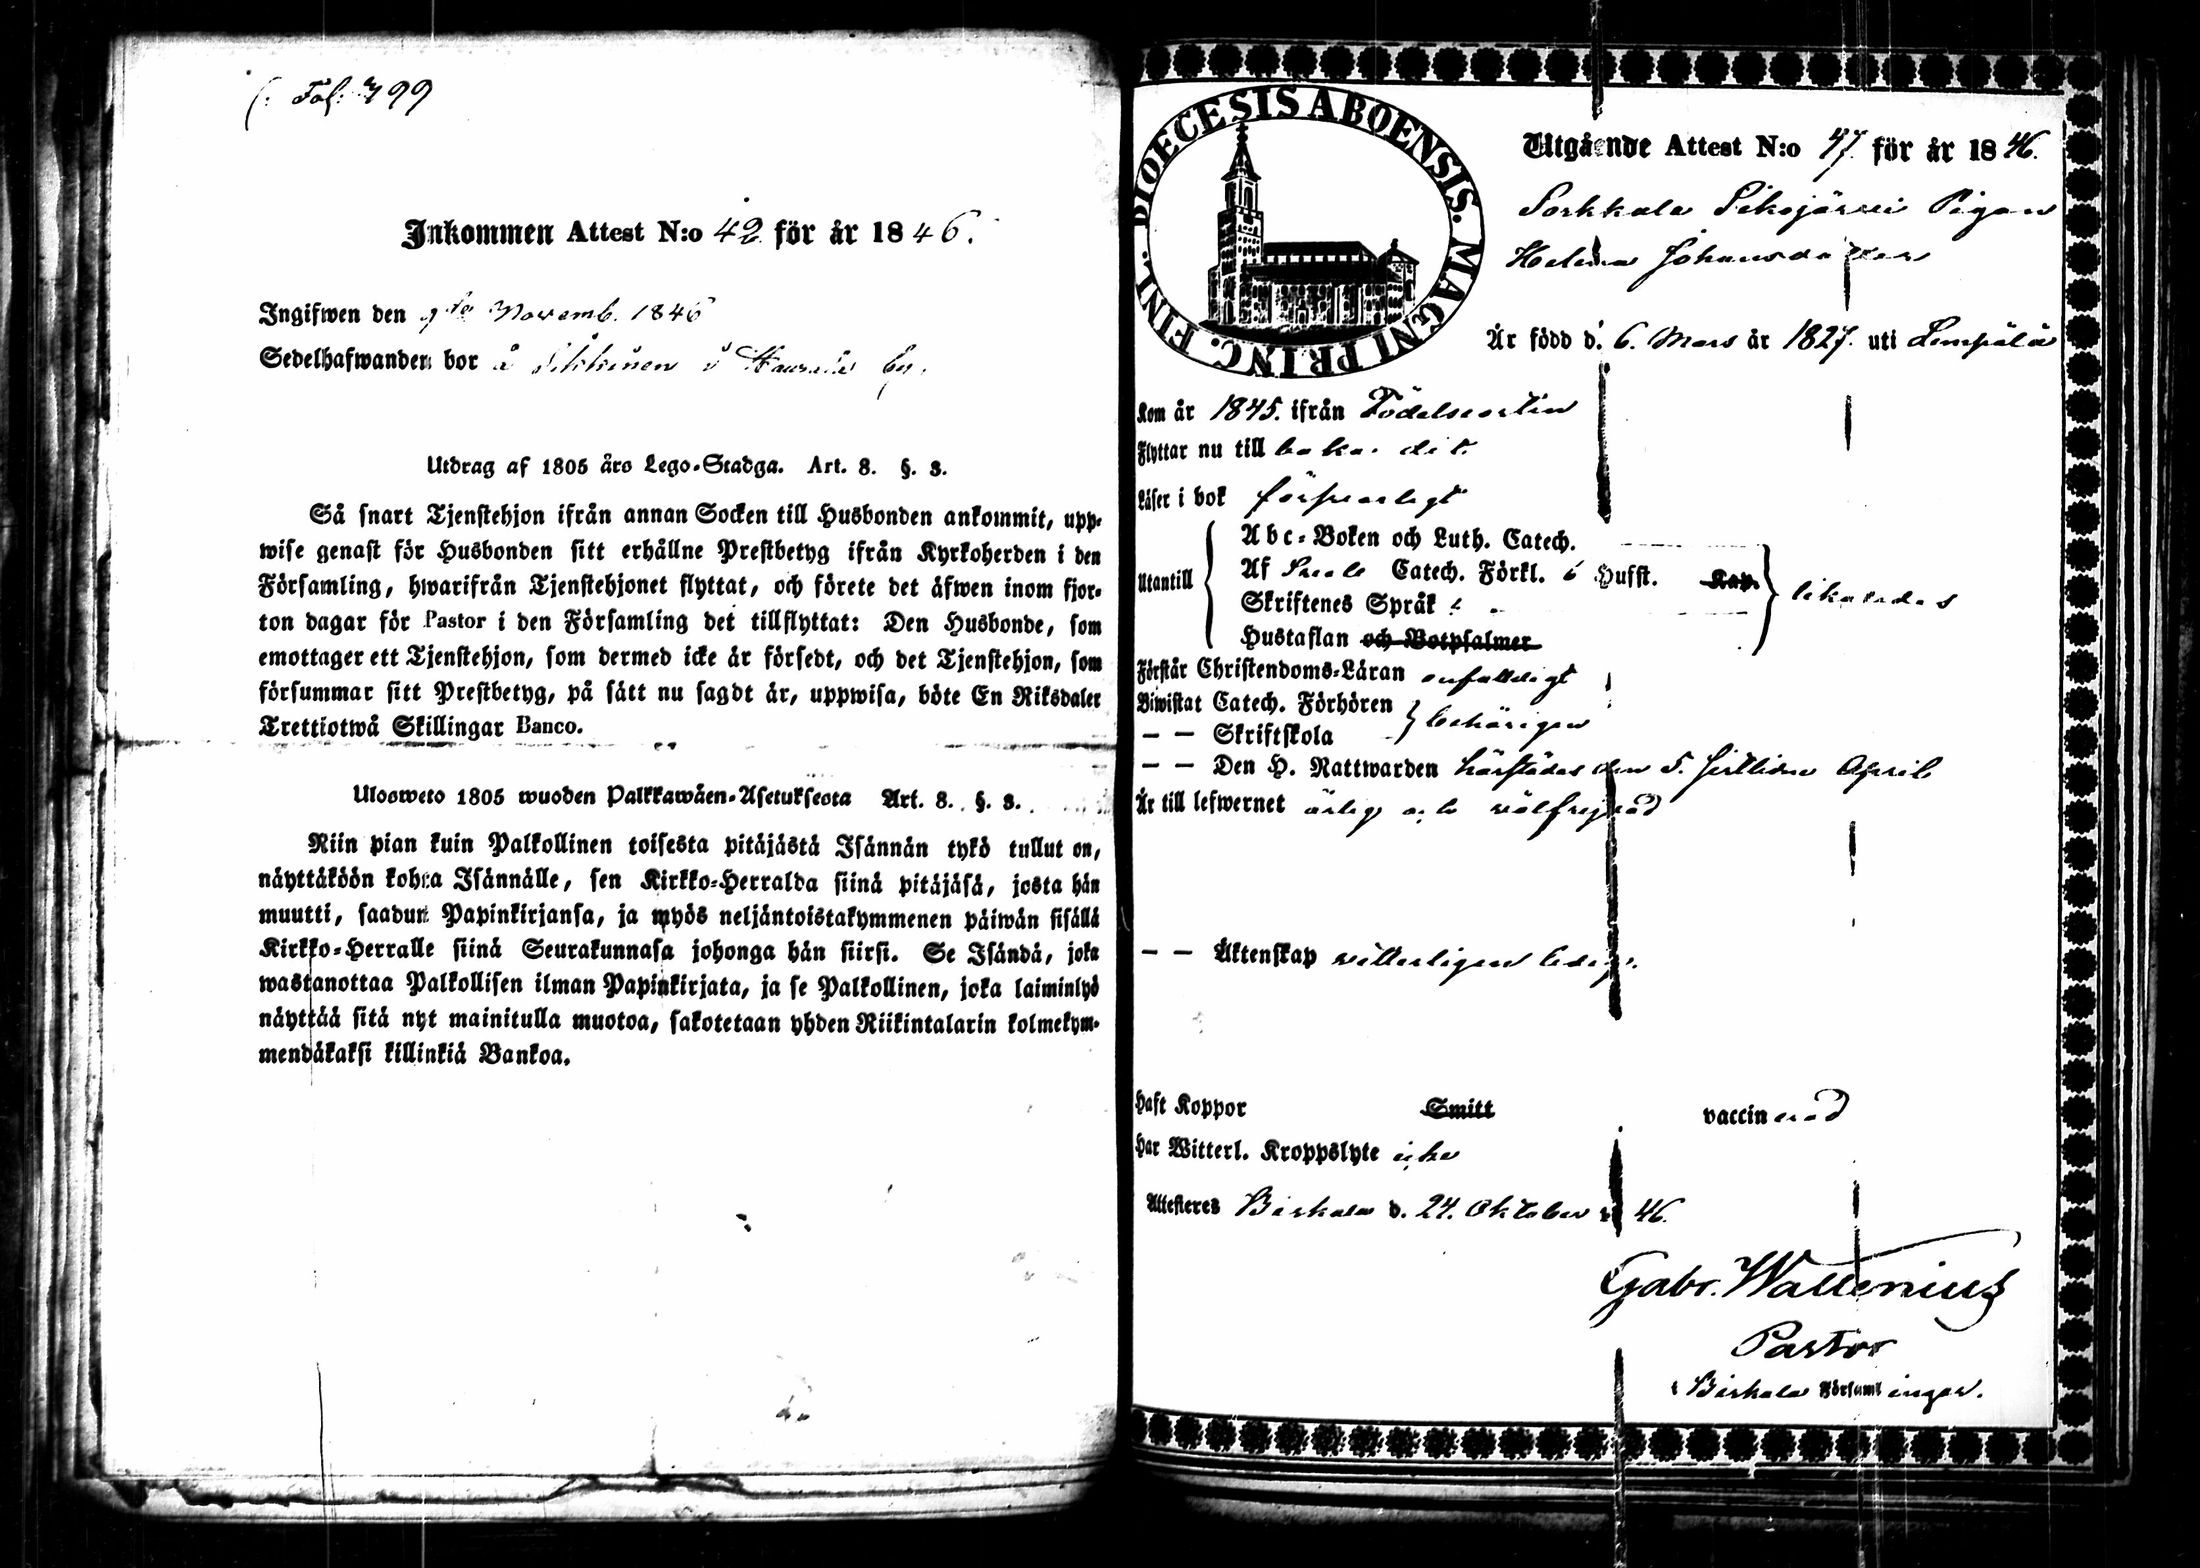 Fol: 799
Inkommen Attest N:o 42 för år 1846.
Ingifwen den 9de Novemb. 1846
Sedelhafwanden bor å Sikkinen i By.
Utdrag af 1805 års Lego-Stadga. Art. 8. §. 3.
Så snart Tjenstehjon ifrån annan Socken till Husbonden ankommit, upp-
wise genast för Husbonden sitt erhållne Prestbetyg ifrån Kyrkoherden i den
Församling, hwarifrån Tjenstehjonet flyttat, och förete det äfwen inom fjor-
ton dagar för Pastor i den Församling det tillflyttat: Den Husbonde, som
emottager ett Tjenstehjon, som dermed icke är försedt, och det Tjenstehjon, som
försummar sitt Prestbetyg, på sätt nu sagdt är, uppwisa, böte En Riksdaler
Trettiotwå Skillingar Banco.
Ulosweto 1805 wuoden Palkkawäen-Asetuksesta Art. 8. §. 3.
Niin pian kuin Palkollinen toisesta pitäjästä Isännän tykö tullut on,
näyttäköön kohta Isännälle, sen Kirkko-Herralda siinä pitäjäsä, josta hän
muutti, saadun Papinkirjansa, ja myös neljäntoistakymmenen päiwän sisällä
Kirkko-Herralle siinä Seurakunnasa johonga hän siirsi. Se Isändä, joka
wastanottaa Palkollisen ilman Papinkirjata, ja se Palkollinen, joka laiminlyö
näyttää sitä nyt mainitulla muotoa, sakotetaan yhden Riikintalarin kolmekym-
mendäkaksi killinkiä Bankoa.
DIOECESIS ABOENSIS. MAGNI PRINC. FINL.
Utgående Attest N:o 47. för år 1846.
Sorkkala Sikojärvi Pigan
Helena Johansdotter
Är född d. 6. Mars år 1827. uti Lempälä
Kom år 1845. ifrån Födelseorten
Flyttar nu till baka dit.
Läser i bok försvarligt
Utantill
Abc-Boken och Luth. Catech.
Af Catech. Förkl. Husst. Kap.
Skriftenes Språk
likaledes
Hustaflan och Botpsalmer
Förstår Christendoms-Läran enfaldigt
Biwistat Catech. Förhören
— — Skriftskola
behörigen
— — Den H. Nattwarden härstädes den 5. sistlidne April
Är till lefwernet ärlig och välfrejdad
— — Äktenskap vitterligen ledig.
Haft Koppor Smitt vaccinerad
Har Witterl. Kroppslyte icke
Attesteres Birkala d. 24. Oktober 46.
Gabr. Wallenius
Pastor
i Birkala Församlingar.